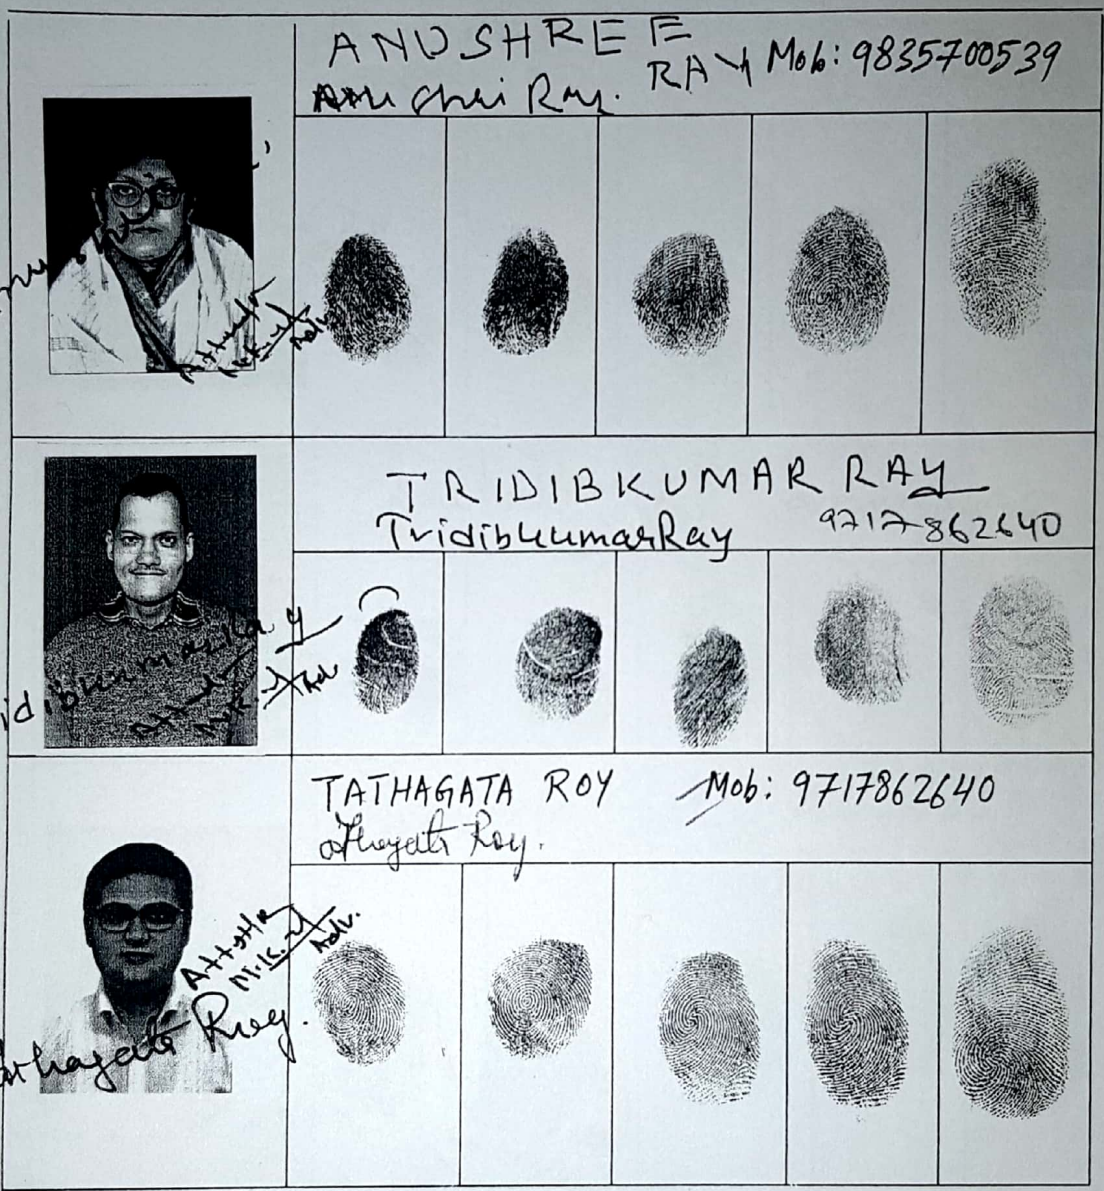 ANUSHREE
RAY Mob: 9835700539
Ray.
Attested
Adv.
TRIDIBKUMAR RAY
TridibkumarRay 9717862640
idibkumarRay
Attested
Adv
TATHAGATA ROY Mob: 9717862640
athagata Roy.
Attested
M.K.
Adv.
athagata Roy.